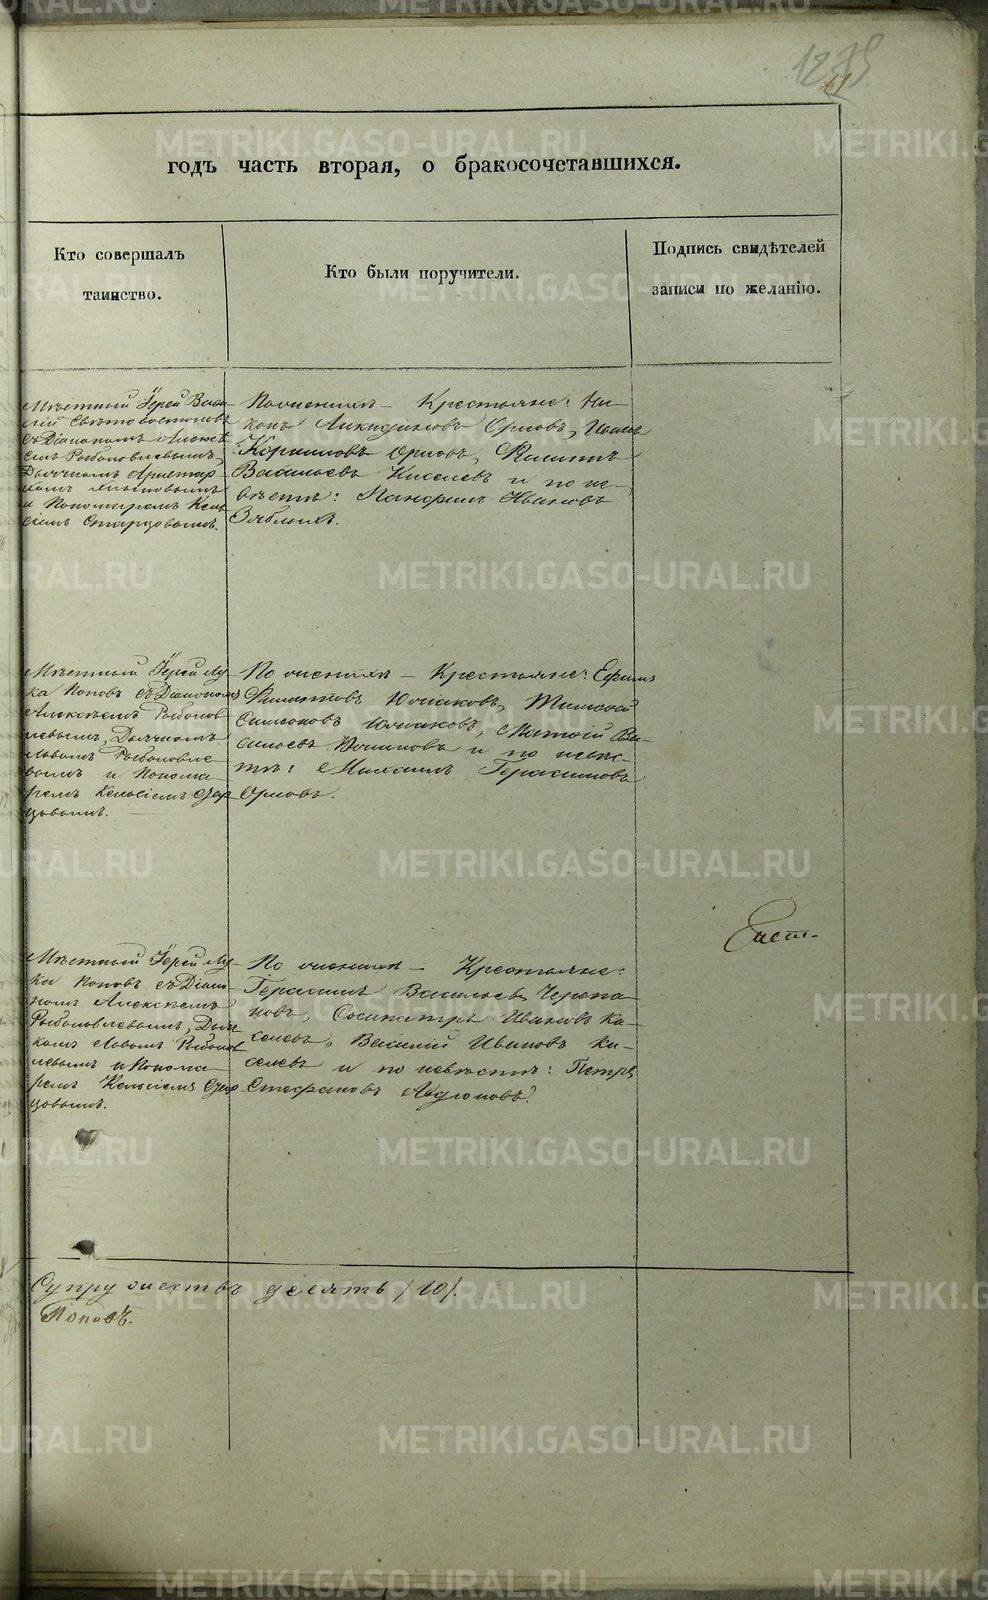 1235
61
годъ часть вторая, о бракосочетавшихся.
Кто совершалъ
таинство.
Кто были поручители.
Подпись свидѣтелей
записи по желанію.
Мѣстный Іерей Васи-
лій
съ Діакономъ Алексѣ-
емъ Рыболовлевымъ,
Дьячкомъ Аристар-
хомъ
и Пономаремъ Кель-
сіемъ Старцовымъ.
По женихѣ – Крестьяне: Ни-
конъ Орловъ, Иванъ
Корниловъ Орловъ, Филиппъ
Васильевъ Киселевъ и по не-
вѣстѣ: Панфилъ Ивановъ
Зяблыхъ.
Мѣстный Іерей Лу-
ка Поповъ съ Діакономъ
Алексѣемъ Рыболов-
левымъ, Дьячкомъ
Львомъ Рыболовле-
вымъ и Понома-
ремъ Кельсіемъ Стар-
цовымъ.
По женихѣ – Крестьяне: Ефимъ
Филатовъ Тимофей
Симоновъ Матвій Ва-
сильевъ и по невѣс-
тѣ: Михаилъ Герасимовъ
Орловъ.
Мѣстный Іерей Лу-
ка Поповъ съ Діако-
номъ Алексѣемъ
Рыболовлевымъ, Дьяч-
комъ Львомъ Рыболов-
левымъ и Понома-
ремъ Кельсіемъ Стар-
цовымъ.
По женихѣ – Крестьяне:
Герасимъ Васильевъ Черепа-
новъ, Сосипатръ Ивановъ Ки-
селевъ, Василій Ивановъ Ки-
селевъ и по невѣстѣ: Петръ
Стефановъ Авдюковъ.
Супружествъ десять /10/.
Поповъ.
METRIKI.GASO-URAL.RU